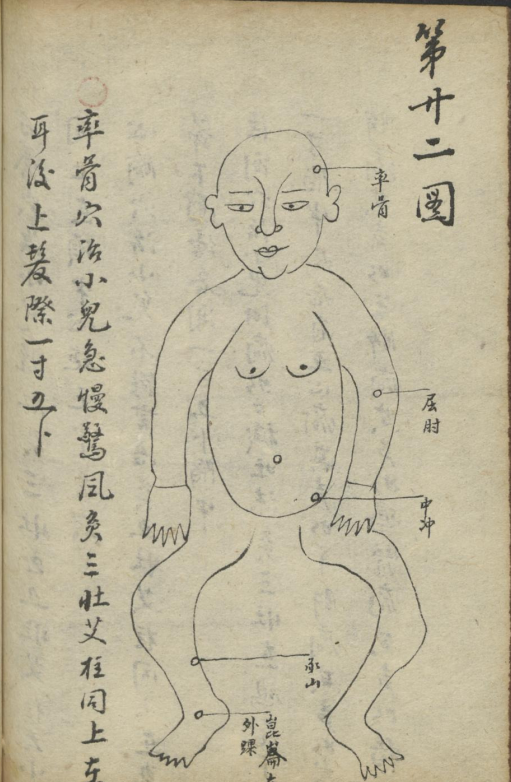 第廿二圖
率骨
屈肘
中冲
承山
崑崙
外踝
率骨穴治小兒急慢驚風灸三壯艾炷同上在
耳後上髮際一寸五卜